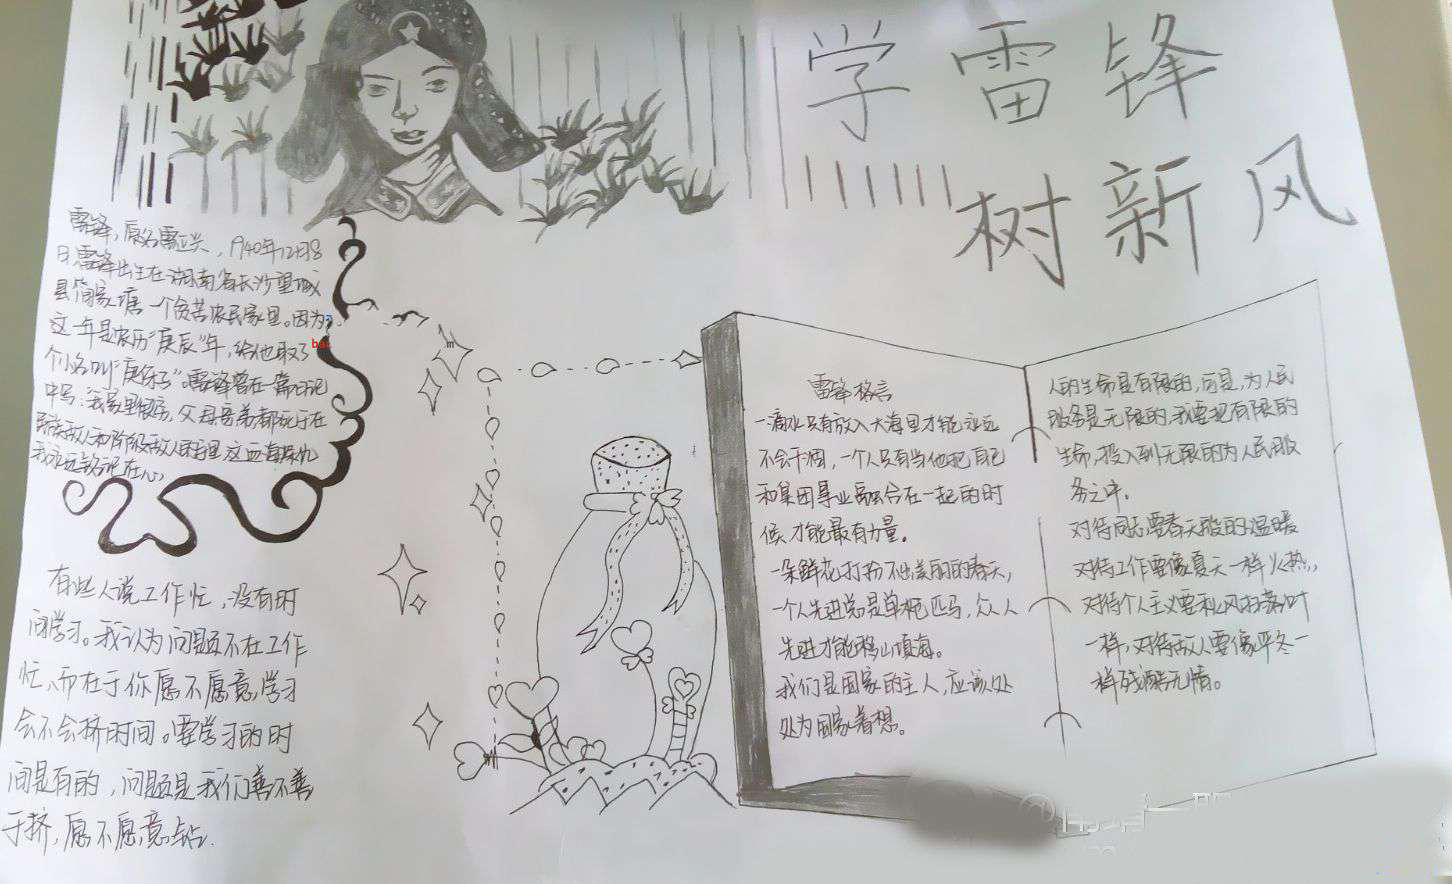 学雷锋
树新风
雷锋，原名雷正兴，1940年12月18
日，雷锋出生在湖南省长沙望城
县简家塘一个贫苦农民家里。因为
这一年是农历“庚辰”年，给他取了
个小名叫“庚伢子”。雷锋曾在一篇日记
中写：我家里很穷，父母哥弟都死于在
民族敌人和阶级敌人的手里这血海深仇
我永远铭记在心，
有些人说工作忙，没有时
间学习。我认为问题不在工作
忙，而在于你愿不愿意学习
会不会挤时间。要学习的时
间是有的，问题是我们善不善
于挤，愿不愿意钻.
雷锋格言
一滴水只有放入大海里才能永远
不会干涸，一个人只有当他把自己
和集团事业融合在一起的时
候才能最有力量。
一朵鲜花打扮不出美丽的春天，
一个人先进总是单枪匹马，众人
先进才能移山填海。
我们是国家的主人，应该处
处为国家着想。
人的生命是有限的，可是，为人民
服务是无限的，我要把有限的
生命，投入到无限的为人民服
务之中.
对待同志要春天般的温暖
对待工作要像夏天一样火热，
对待个人主义要秋风扫落叶
一样，对待敌人要像严冬一
样残酷无情。